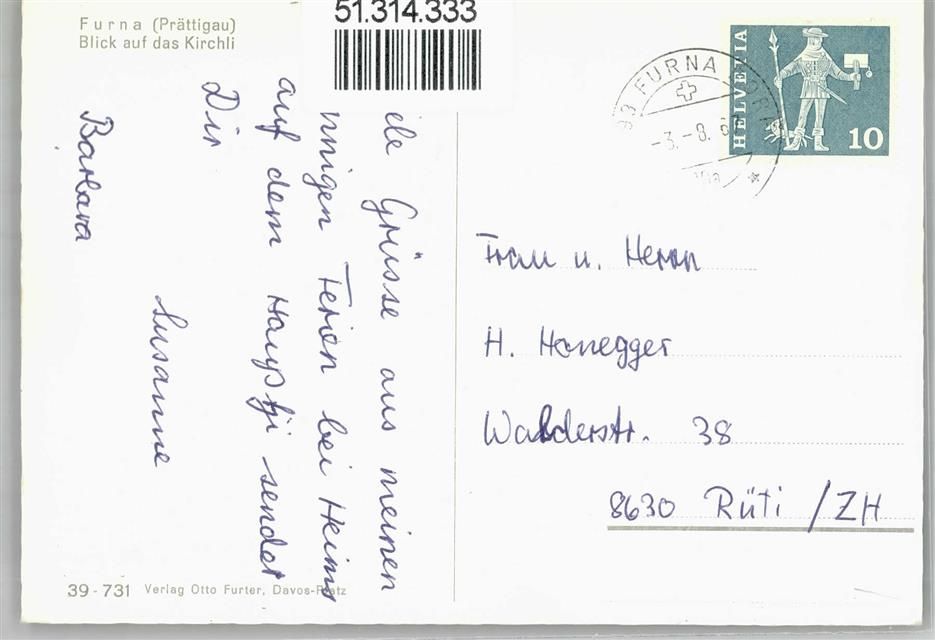 Furna (Prättigau)
Blick auf das Kirchli
51.314.333
FURNA
-3.-8.6
HELVETIA
10
Grüsse aus meinen
Ferien bei Heinis
auf dem Hauptji sendet
Dir
Susanne
Barbara
Frau u. Herrn
H. Honegger
Walderstr. 38
8630 Rüti / ZH
39-731 Verlag Otto Furter, Davos-Platz